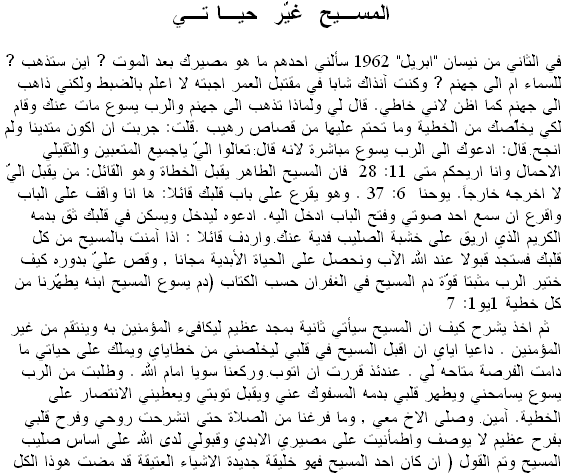 المســيح غيّر حيــاتــي
في الثاني من نيسان "ابريل" 1962 سألني احدهم ما هو مصيرك بعد الموت ? اين ستذهب ?
للسماء ام الى جهنم ? وكنت آنذاك شابا في مقتبل العمر اجبته لا اعلم بالضبط ولكني ذاهب
الى جهنم كما اظن لاني خاطي. قال لي ولماذا تذهب الى جهنم والرب يسوع مات عنك وقام
لكي يخلّصك من الخطية وما تحتم عليها من قصاص رهيب .قلت: جربت ان اكون متدينا ولم
انجح.قال: ادعوك الى الرب يسوع مباشرة لانه قال:تعالوا اليّ ياجميع المتعبين والثقيلي
الاحمال وانا اريحكم متي 11: 28 فان المسيح الطاهر يقبل الخطاة وهو القائل: من يقبل اليّ
لا اخرجه خارجاً. يوحنا 6: 37 . وهو يقرع على باب قلبك قائلا: ها انا واقف على الباب
واقرع ان سمع احد صوتي وفتح الباب ادخل اليه. ادعوه ليدخل ويسكن في قلبك ثق بدمه
الكريم الذي اريق على خشبة الصليب فدية عنك.واردف قائلا : اذا آمنت بالمسيح من كل
قلبك فستجد قبولا عند الله الآب ونحصل على الحياة الأبدية مجانا , وقص عليّ بدوره كيف
ختير الرب مثبتا قوّة دم المسيح في الغفران حسب الكتاب (دم يسوع المسيح ابنه يطهّرنا من
كل خطية 1يو1: 7
ثم اخذ يشرح كيف ان المسيح سيأتي ثانية بمجد عظيم ليكافىء المؤمنين به وينتقم من غير
المؤمنين . داعيا اياي ان اقبل المسيح في قلبي ليخلصني من خطاياي ويملك على حياتي ما
دامت الفرصة متاحه لي . عندئذ قررت ان اتوب.وركعنا سويا امام الله . وطلبت من الرب
يسوع يسامحني ويطهر قلبي بدمه المسفوك عني ويقبل توبتي ويعطيني الانتصار على
الخطية. آمين. وصلى الاخ معي , وما فرغنا من الصلاة حتى انشرحت روحي وفرح قلبي
بفرح عظيم لا يوصف واطمأنيت على مصيري الابدي وقبولي لدى الله على اساس صليب
المسيح وتم القول ( ان كان احد المسيح فهو خليقة جديدة الاشياء العتيقة قد مضت هوذا الكل